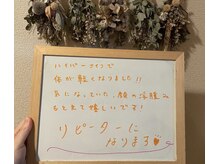 ハイパーナイフで
体が軽くなりました!!
気になっていた、顔の浮腫みも
とれて嬉しいです!
リピーターに
なります